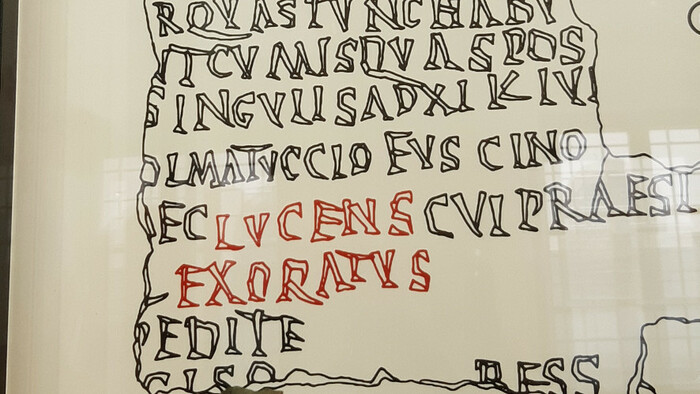 ROVASTVNCHABV
ITCVMISQVASPOS
SINGVLISADXIKIVI
OLMATVCCIOFVSCINO
EC LVCENS CVIPRAEST
EXORATVS
EDITE
CISO RESS